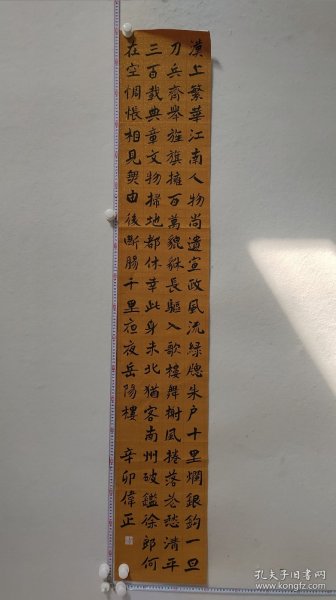 漢上繁華江南人物尚遺宣政風流綠牕朱户十里爛銀鉤一旦
刀兵齊舉旌旗擁百萬貔貅長驅入歌樓舞榭風捲落花愁清平
三百載典章文物掃地都休幸此身未北猶客南州破鑑徐郎何
在空惆悵相見無由後斷腸千里夜夜岳陽樓 辛卯偉正
孔夫子旧书网